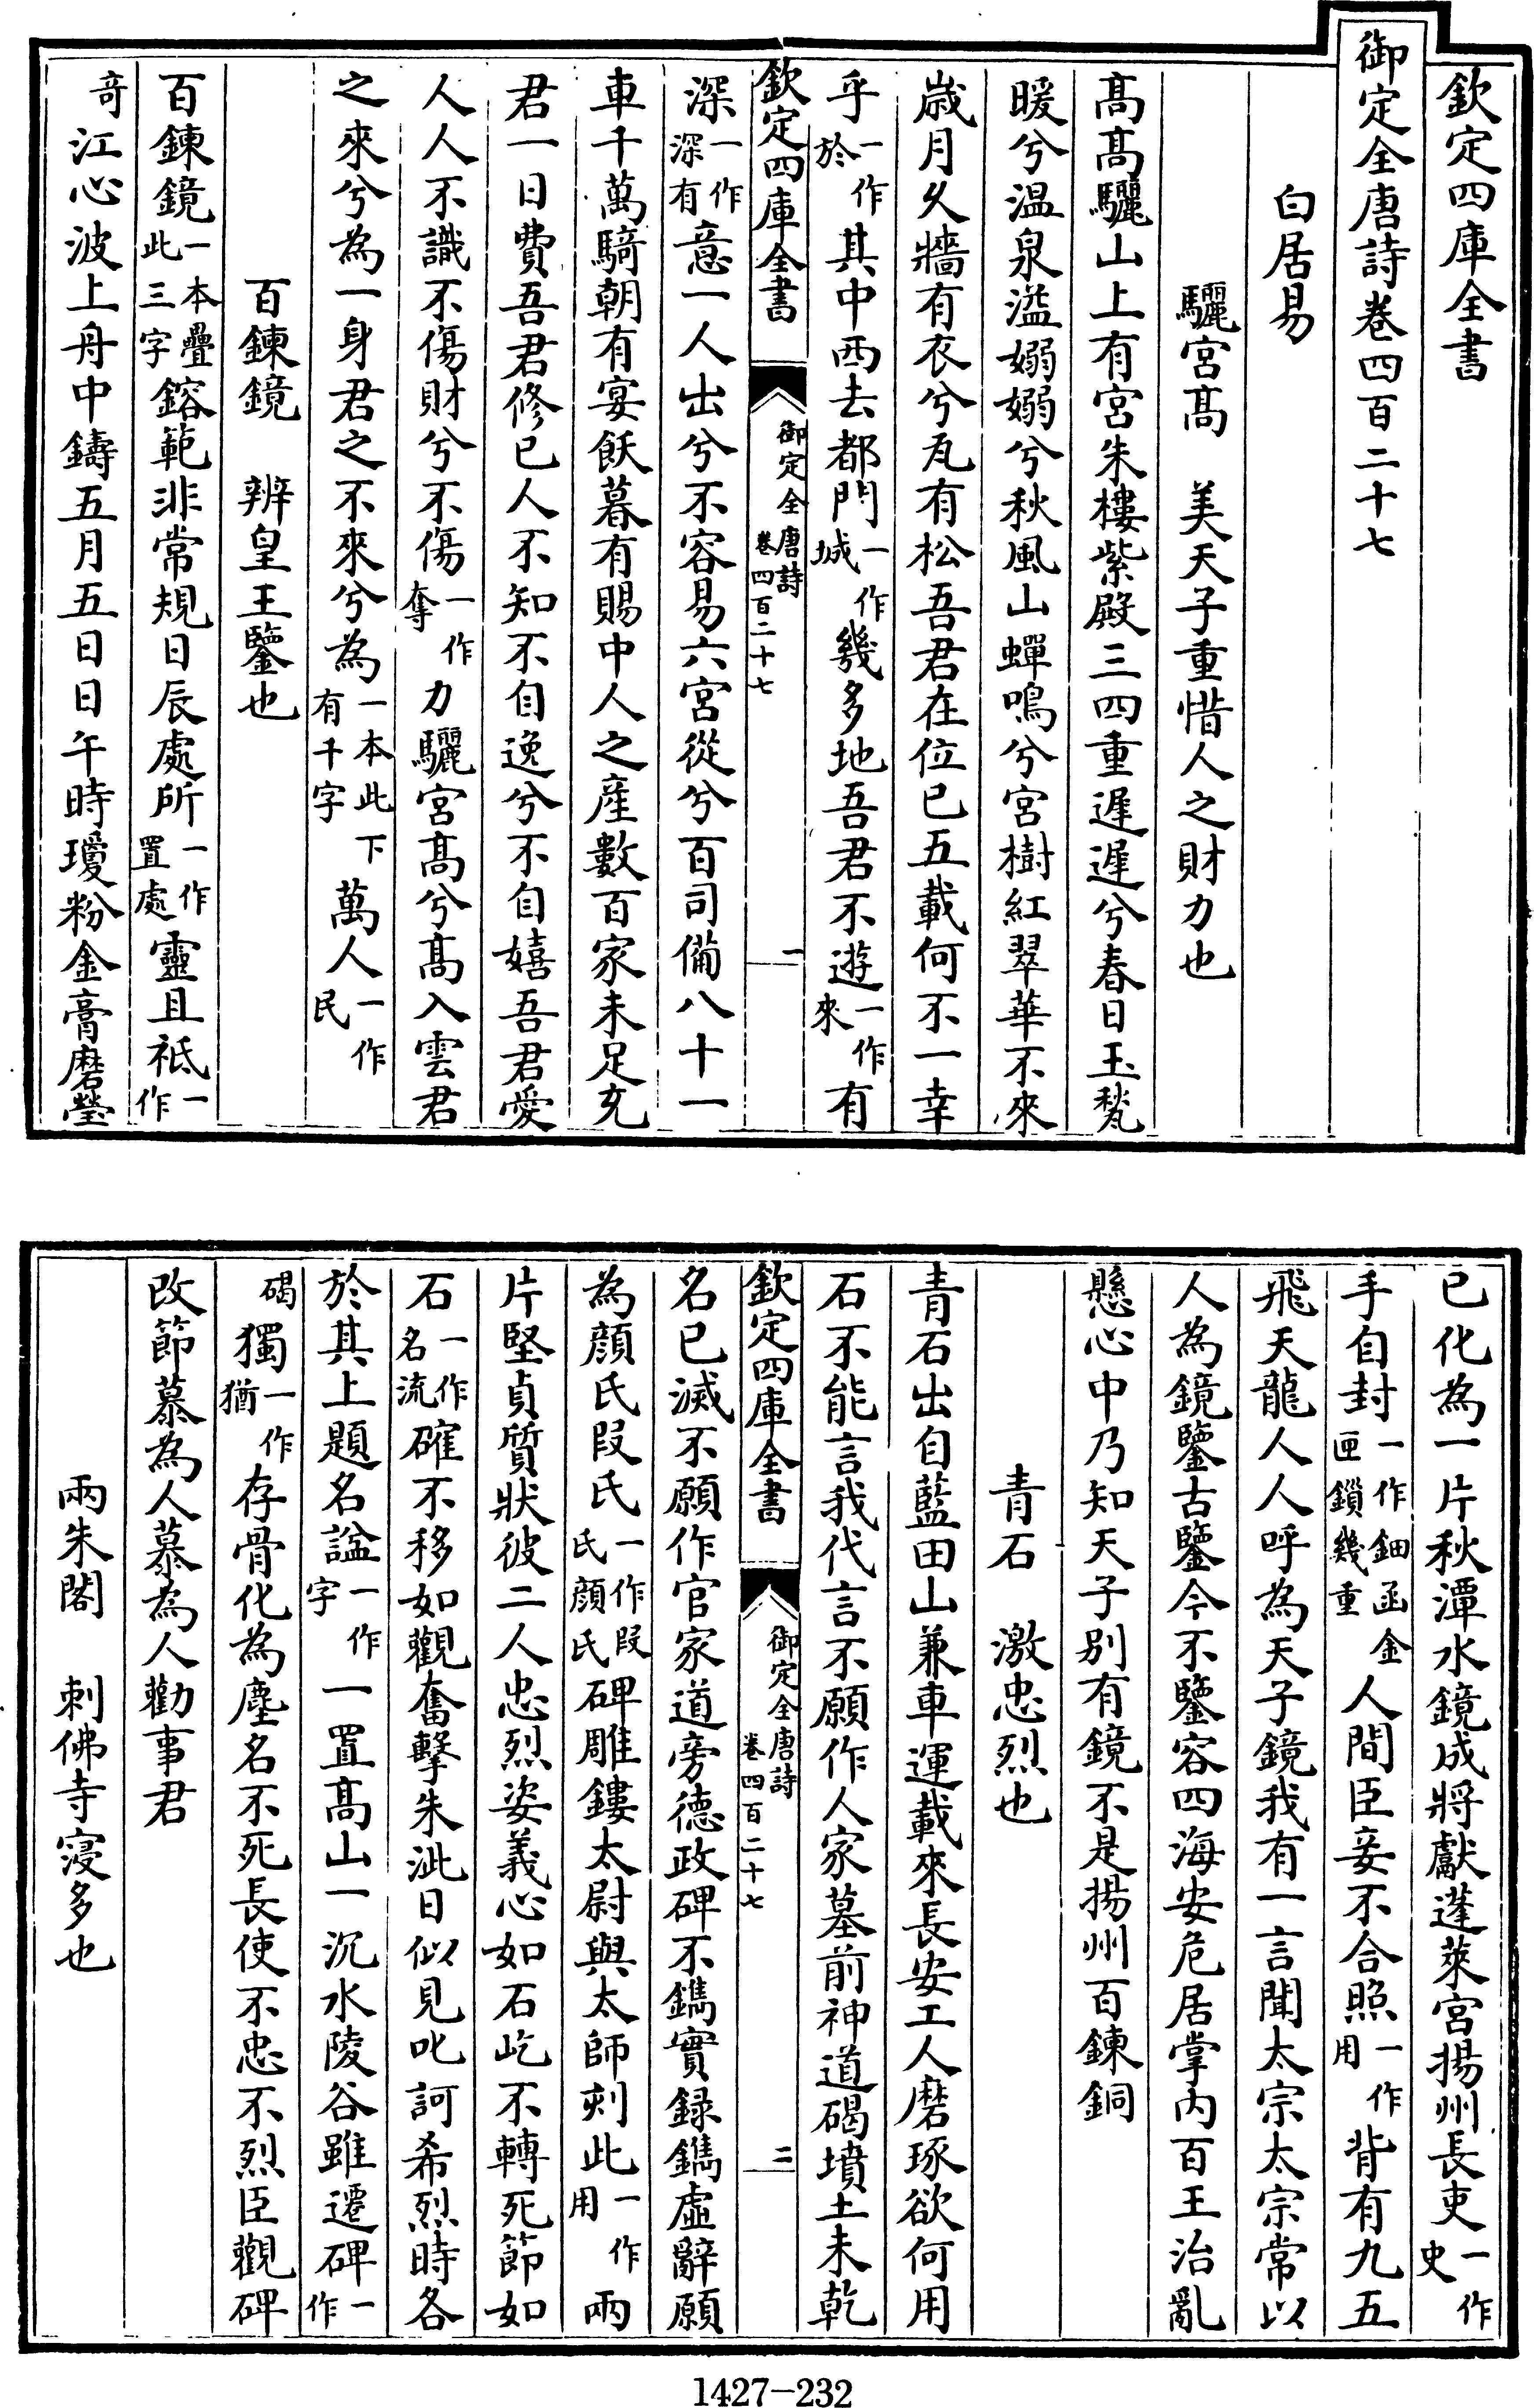 欽定四庫全書
御定全唐詩卷四百二十七
白居易
驪宮髙　美天子重惜人之財力也
髙髙驪山上有宮朱樓紫殿三四重遲遲兮春日玉甃
暖兮温泉溢嫋嫋兮秋風山蟬鳴兮宮樹紅翠華不來
歲月久牆有衣兮瓦有松吾君在位已五載何不一幸
乎一作於其中西去都門一作城幾多地吾君不遊一作來有
欽定四庫全書　御定全唐詩卷四百二十七　一
深一作深有意一人出兮不容易六宮從兮百司備八十一
車千萬騎朝有宴飫暮有賜中人之産數百家未足充
君一日費吾君修已人不知不自逸兮不自嬉吾君愛
人人不識不傷財兮不傷一作奪力驪宮髙兮髙入雲君
之來兮為一身君之不來兮為一本此下有千字萬人一作民
百鍊鏡　辨皇王鑒也
百鍊鏡一本疊此三字鎔範非常規日辰處所一作置處靈且祇一作
奇江心波上舟中鑄五月五日日午時瓊粉金膏磨瑩
已化為一片秋潭水鏡成將獻蓬萊宮揚州長吏一作史
手自封一作鈿函金匣鎖幾重人間臣妾不合照一作用背有九五
飛天龍人人呼為天子鏡我有一言聞太宗太宗常以
人為鏡鑒古鑒今不鑒容四海安危居掌内百王治亂
懸心中乃知天子别有鏡不是揚州百鍊銅
青石　激忠烈也
青石出自藍田山兼車運載來長安工人磨琢欲何用
石不能言我代言不願作人家墓前神道碣墳土未乾
欽定四庫全書　御定全唐詩卷四百二十七　二
名已滅不願作官家道旁德政碑不鐫實録鐫虛辭願
為顔氏段氏一作段氏顔氏碑雕鏤太尉與太師刻此一作用兩
片堅貞質狀彼二人忠烈姿義心如石屹不轉死節如
石一作名流確不移如觀奮擊朱泚日似見叱訶希烈時各
於其上題名諡一作字一置髙山一沉水陵谷雖遷碑一作
碣獨一作猶存骨化為塵名不死長使不忠不烈臣觀碑
改節慕為人慕為人勸事君
兩朱閣　刺佛寺寖多也
1427-232